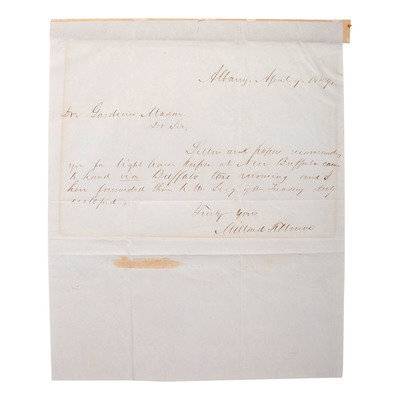 Albany, April 9, 18
Dr Gardner Mason
Dr Sir,
Letter and papers recommending
you for light house keeper at New Buffalo came
to hand via Buffalo this morning and I
have forwarded them to the Secy of the Treasury duly
endorsed.
Truly Yours
Millard Fillmore